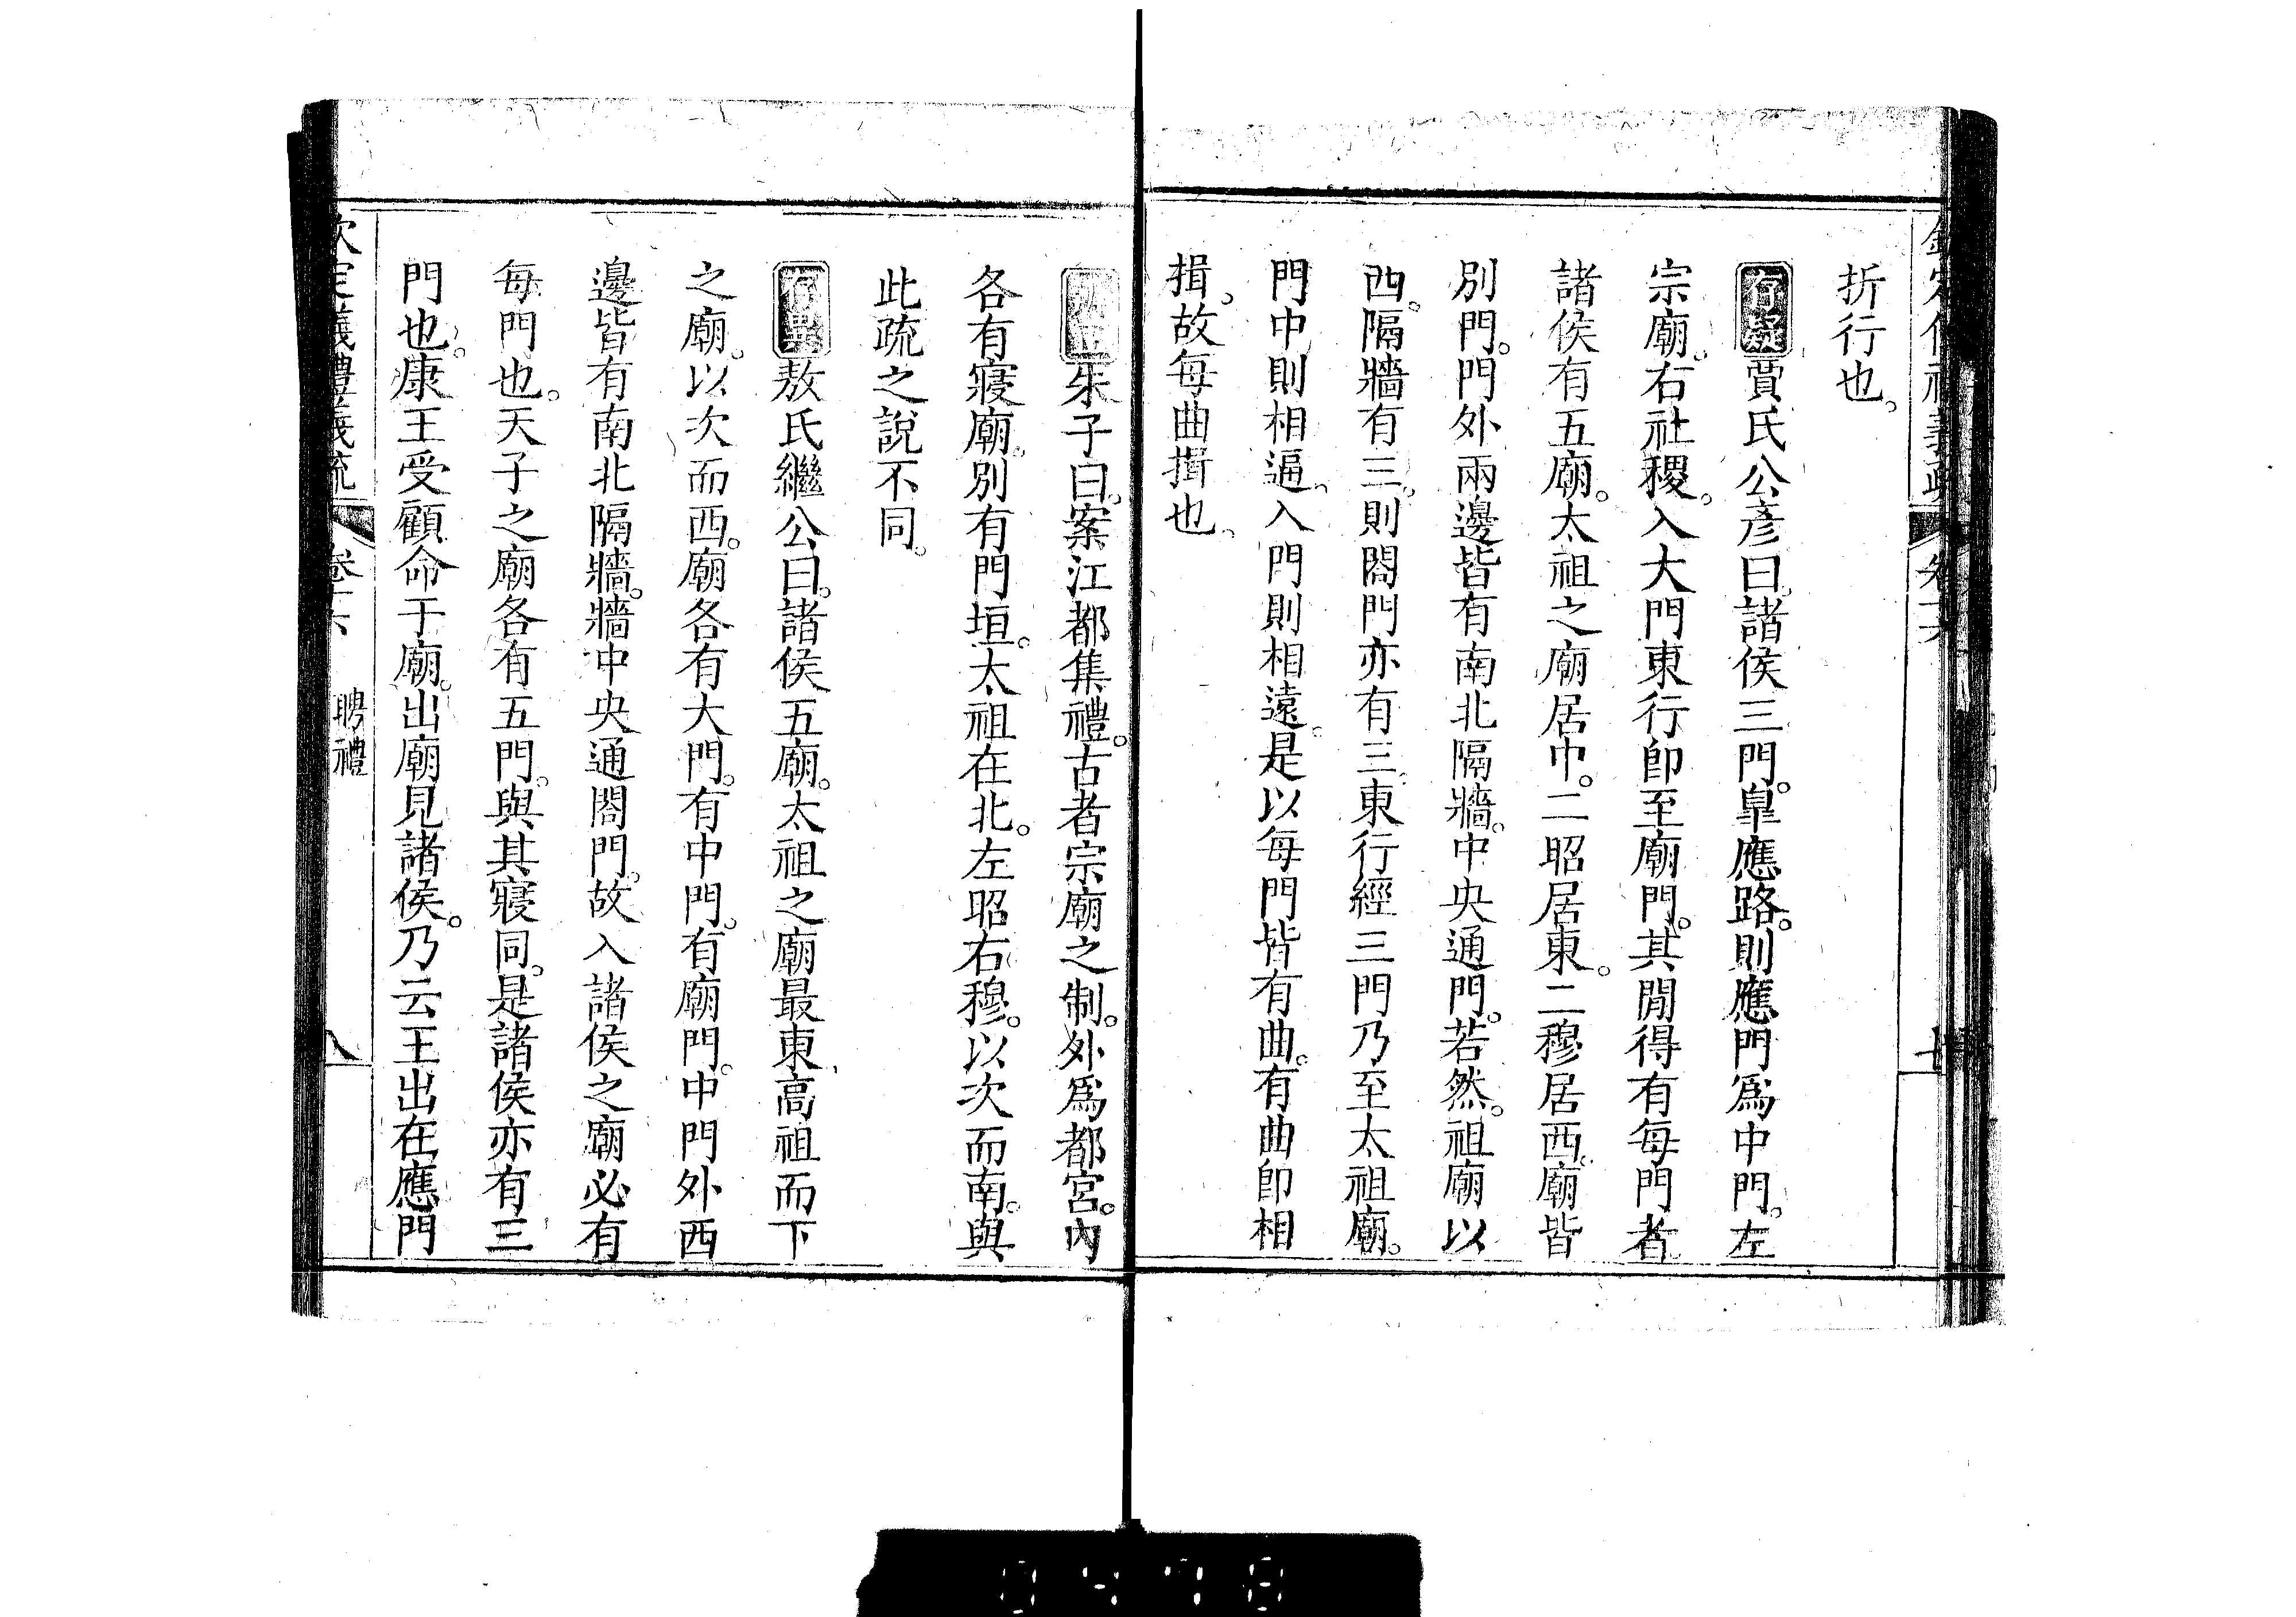 折行也。
存疑賈氏公彥曰。諸侯三門。皐應路。則應門爲中門。左
宗廟。右社稷。入大門東行卽至廟門。其閒得有每門者
諸侯有五廟。太祖之廟居中。二昭居東。二穆居西。廟皆
別門。門外兩邊皆有南北隔牆。牆中央通門。若然。祖廟以
西。隔牆有三。則閤門亦有三。東行經三門乃至太祖廟。
門中則相逼。入門則相遠。是以每門皆有曲。有曲卽相
揖。故每曲揖也。
朱子曰。案江都集禮。古者宗廟之制。外爲都宮。內
各有寢廟。別有門垣。太祖在北。左昭右穆。以次而南。與
此疏之說不同。
存異敖氏繼公曰。諸侯五廟。太祖之廟最東。高祖而下
之廟。以次而西。廟各有大門。有中門。有廟門。中門外西
邊皆有南北隔牆。牆中央通閤門。故入諸侯之廟必有
每門也。天子之廟各有五門。與其寢同。是諸侯亦有三
門也。康王受顧命于廟。出廟見諸侯。乃云王出在應門
欽定儀禮義疏 卷十六 聘禮 八